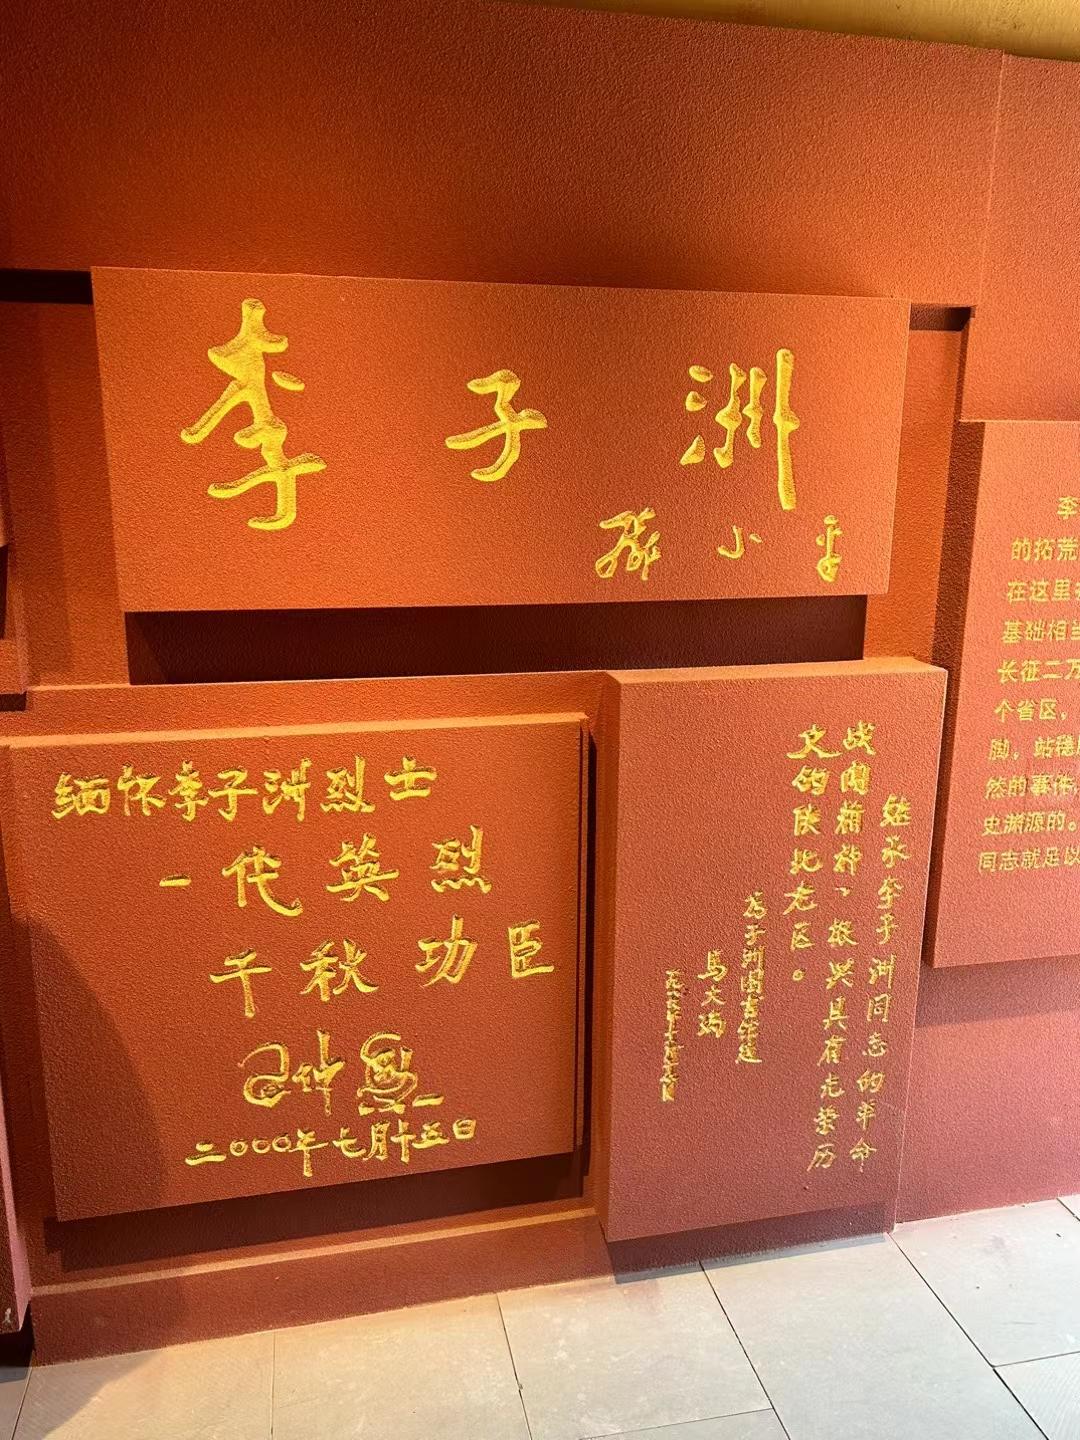 李子洲
鄧小平
缅怀李子洲烈士
一代英烈
千秋功臣
习仲勋
二〇〇〇年七月十五日
继承李子洲同志的革命
战闘精神、振兴具有光荣历
史的陕北老区。
为子洲图书馆题
马文瑞
李
的拓荒
在这里
基础相当
长征二万
个省区，
脚，站稳
然的事件，
史渊源的。
同志就足以